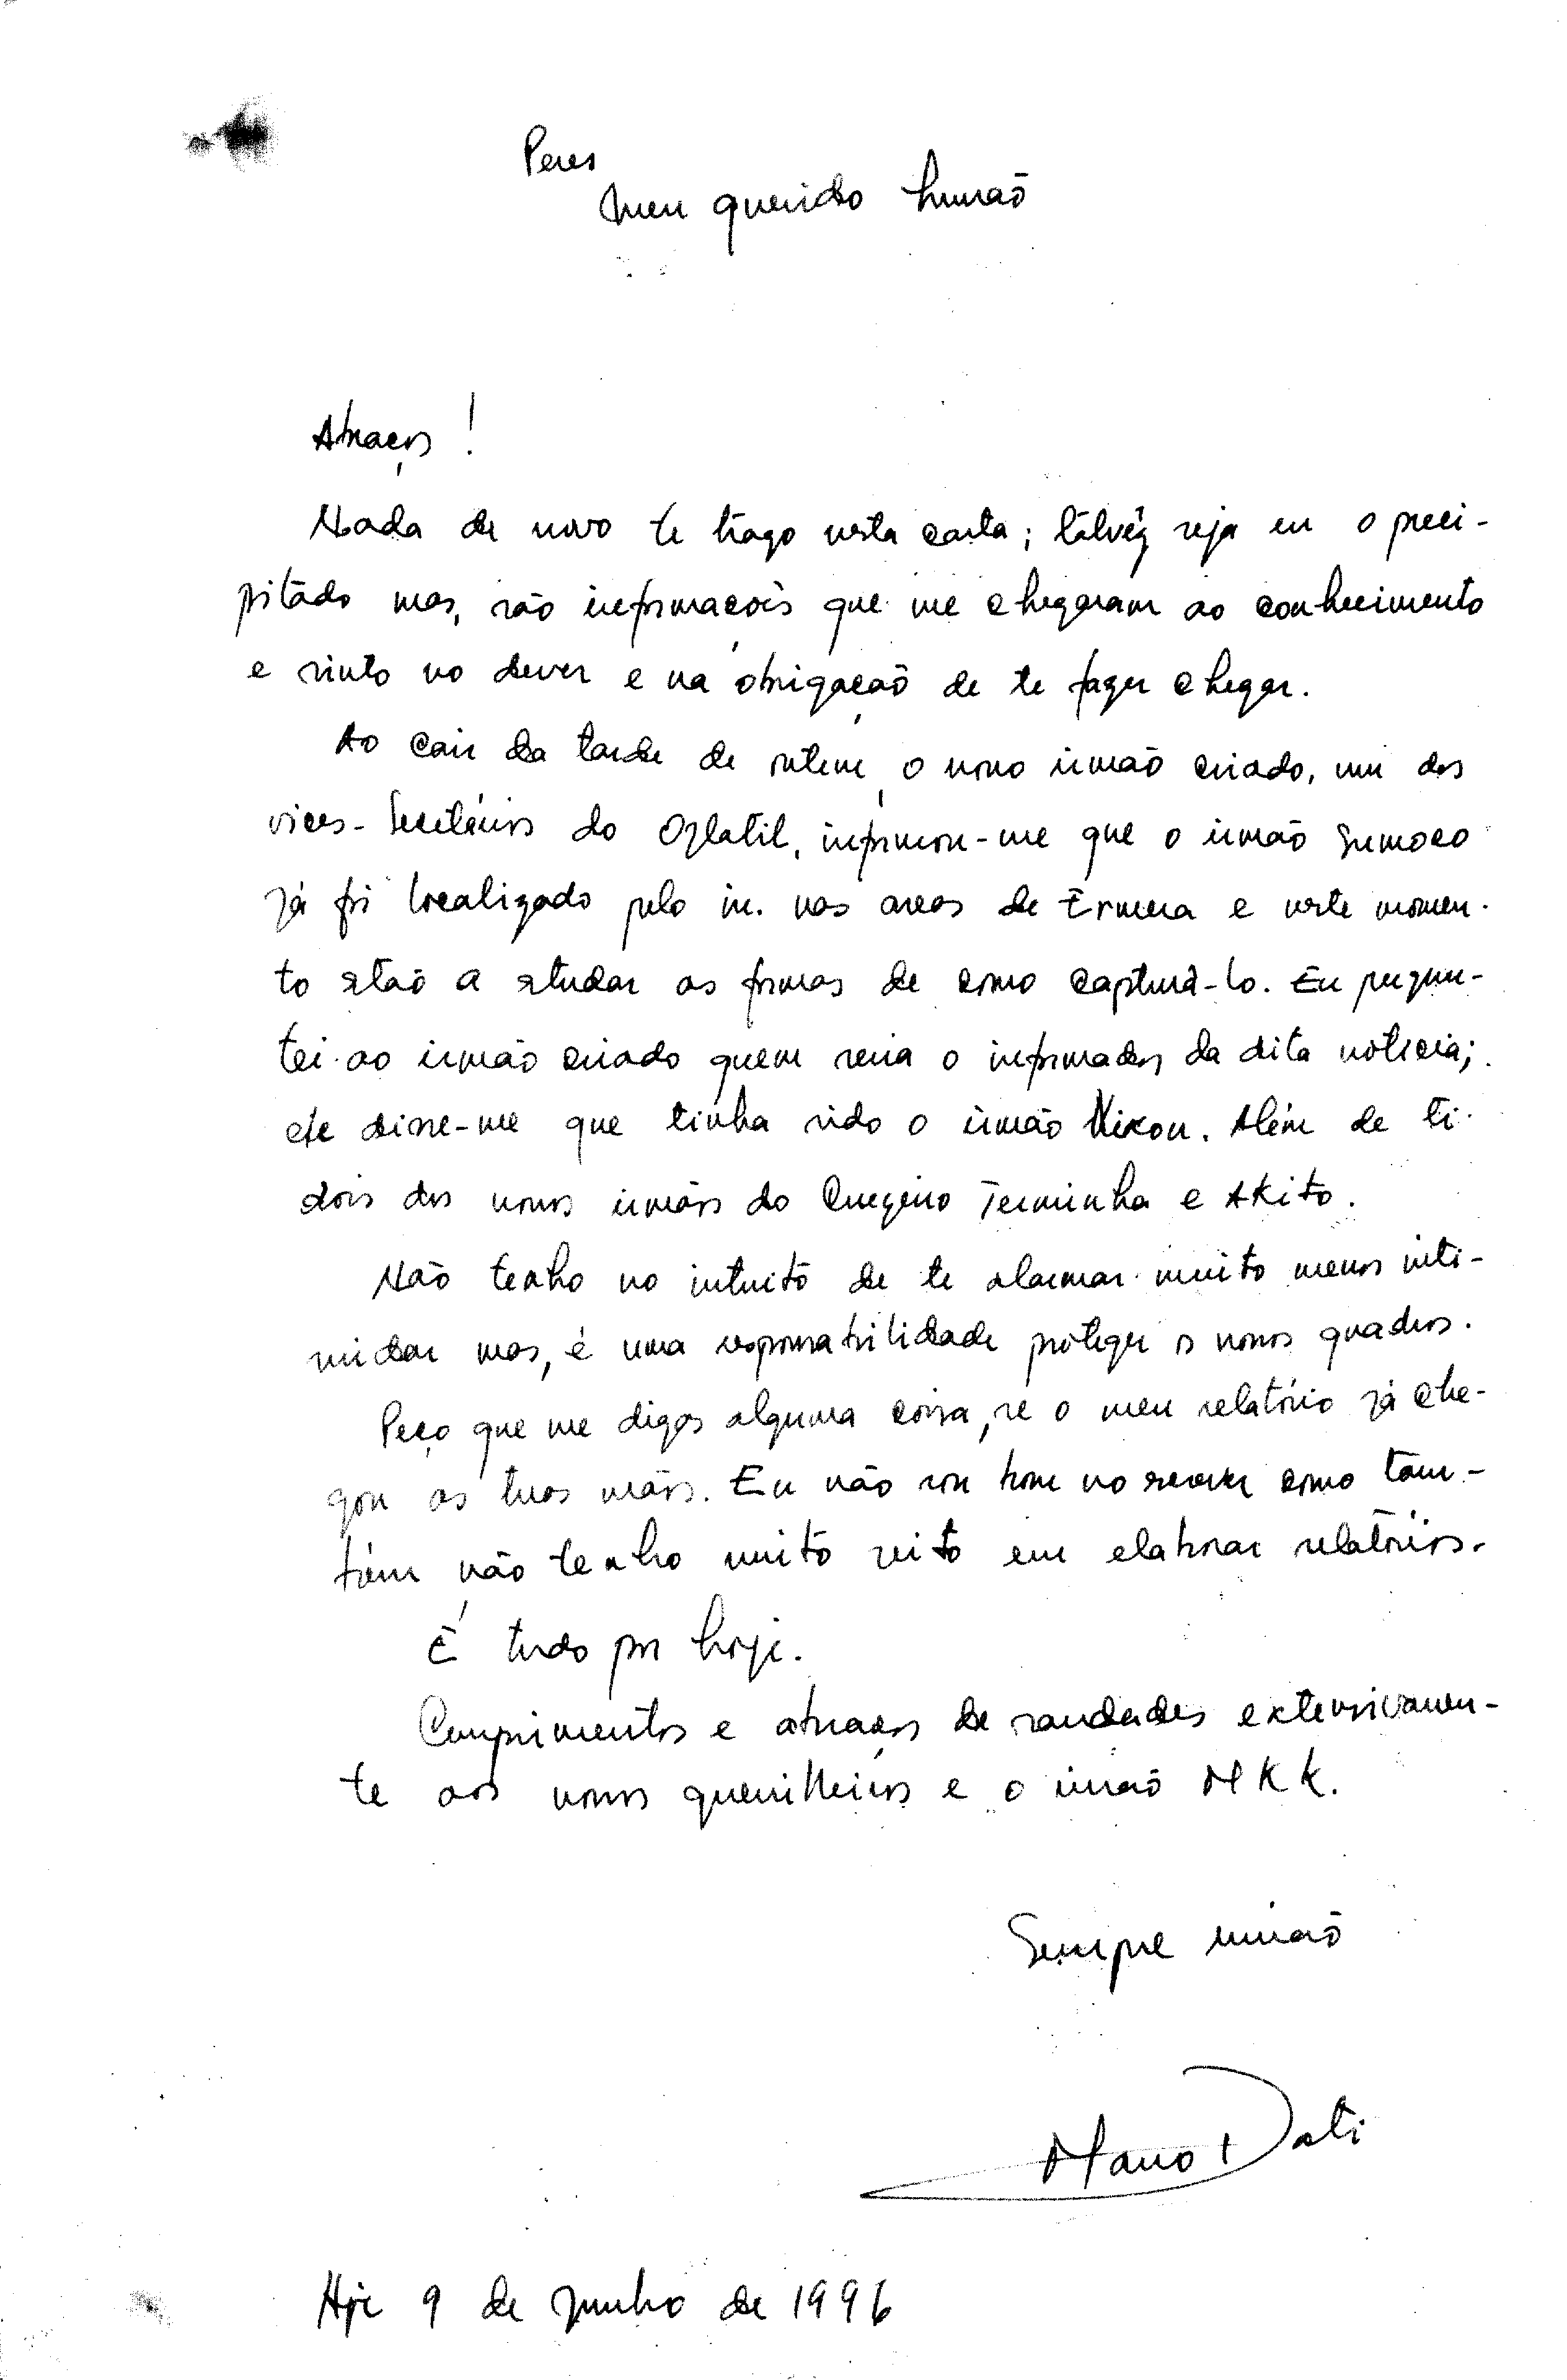 Peres
Meu querido Irmaõ
Abraços!
Nada de novo te trago nesta carta; tálvêz seja eu o preci-
pitádo mas, são informacoẽs que me chegaram ao conhecimento
e sinto no dever e na obrigaçaõ de te fazer chegar.
Ao cair da tarde de ontem, o nosso irmaõ criado, um dos
vices-Secretários do Ojlatil, informou-me que o irmaõ Sumoco
já foi localizado pelo in. nas areas de Ermera e neste momen-
to estaõ a estudar as formas de como capturá-lo. Eu pergun-
tei ao irmaõ criado quem seria o informador da dita notícia;
ele disse-me que tinha sido o irmaõ Nixon. Além de ti
dois dos nossos irmaõs do Terminha e Akito.
Não tenho no intuito de te alarmar muito menos inti-
midar mas, é uma responsabilidade proteger os nossos quadros.
Peço que me digas alguma coisa, se o meu relatório já che-
gou as tuas maõs. Eu não sou bom no escrever como tam-
bém não tenho muito jeito em elaborar relatórios.
É tudo por hoje.
Cumprimentos e abraços de saudades extensivamen-
te aos nossos guerrilheiros e o irmaõ MKK.
Sempre irmaõ
Mano Dati
Hoje 9 de Junho de 1996